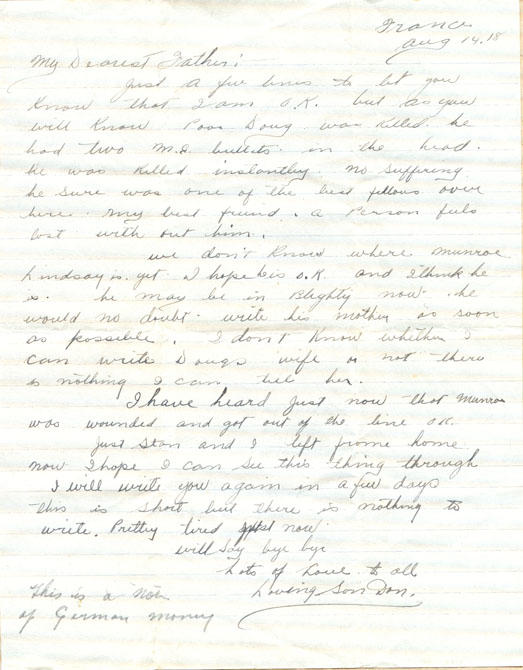 France
Aug 14, 18
My Dearest Father:
Just a few lines to let you
Know that I am O.K. but as you
will Know Poor Doug was Killed. he
had two M.G. bullets in the head.
he was Killed instantly. no suffering
he sure was one of the best fellows over
here. my best friend. a Person feels
lost with out him.
we don't Know where Munroe
Lindsay is yet. I hope he is O.K. and I think he
is. he may be in Blighty now. he
would no doubt write his mother as soon
as possible. I don't Know whether I
can write Dougs wife or not there
is nothing I can tell her.
I have heard just now that Munroe
was wounded and got out of the line O.K.
just Stan and I left frome home
now I hope I can see this thing through
I will write you again in a few days
this is short but there is nothing to
write. Prettry tired just now.
will say bye bye
Lots of Love to all
Loving Son Don.
This is a Note
of German money